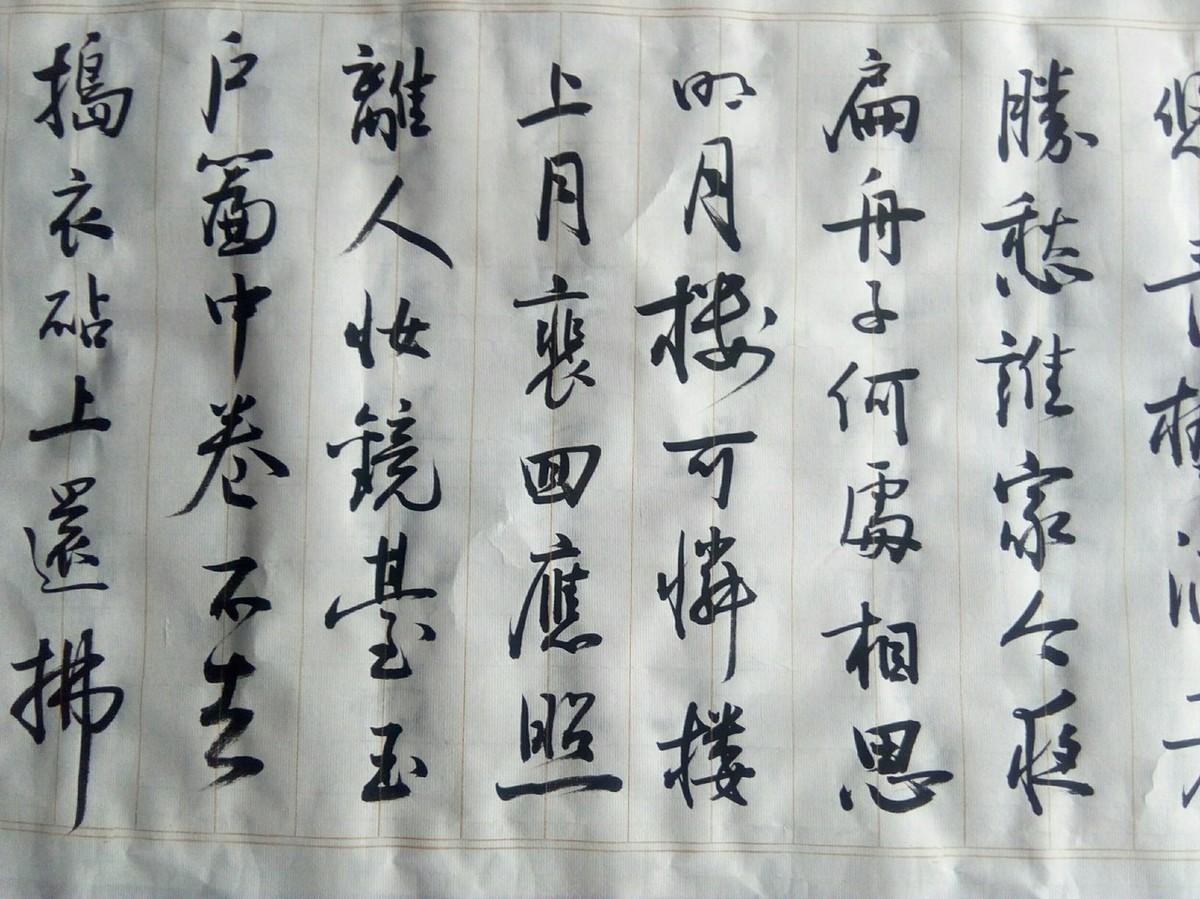 勝愁誰家今夜
扁舟子何處相思
明月楼可憐楼
上月裵回應照
離人妝鏡臺玉
户簾中卷不去
搗衣砧上還拂